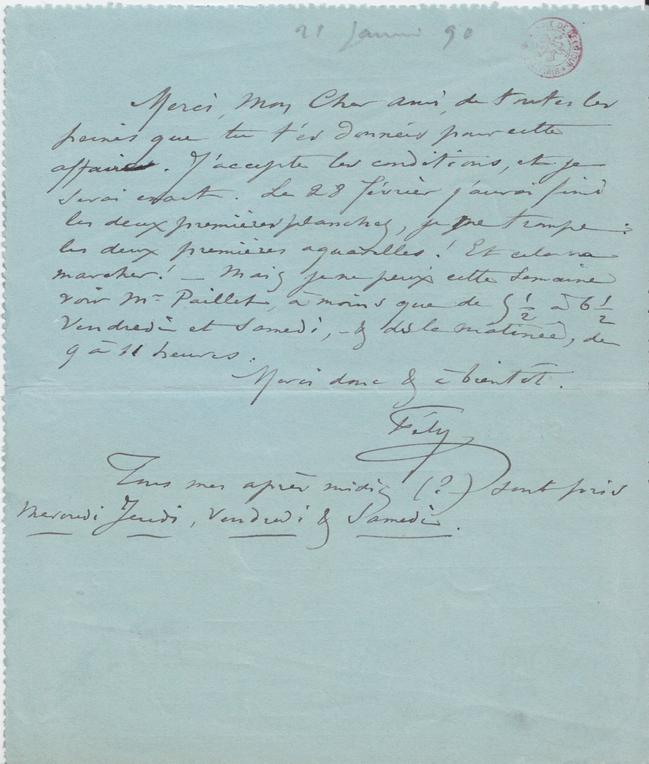 21 Janvier 90
Merci, Mon Cher ami, de toutes les
peines que tu t'es données pour cette
affaire. J'accepte les conditions, et je
serai exact. Le 28 février j'aurai fini
les deux premières planches, je me trompe :
les deux premières aquarelles ! Et cela va
marcher ! — Mais je ne peux cette Semaine
voir Mr Paillet, a moins que de 5 1/2 à 6 1/2
Vendredi et Samedi, - & ds la matinée, de
9 à 11 heures.
Merci donc & à bientôt.
Fély
Tous mes après midis (?) sont pris
Mercredi Jeudi, Vendredi & Samedi.